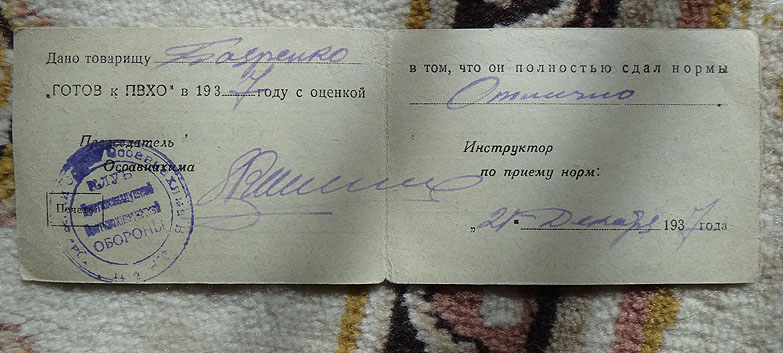 Дано товарищу
в том, что он полностью сдал нормы
„ГОТОВ к ПВХО" в 1937 году с оценкой
Отлично
Председатель
Осоавиахима
Инструктор
по приему норм:
Печать
КЛУБ
ОБОРОНЫ
Декабря 1937 года